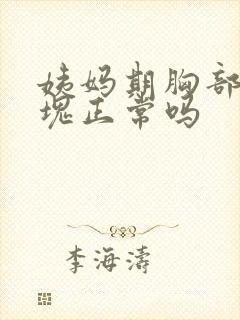 姨妈期胸部
块正常吗
李海涛